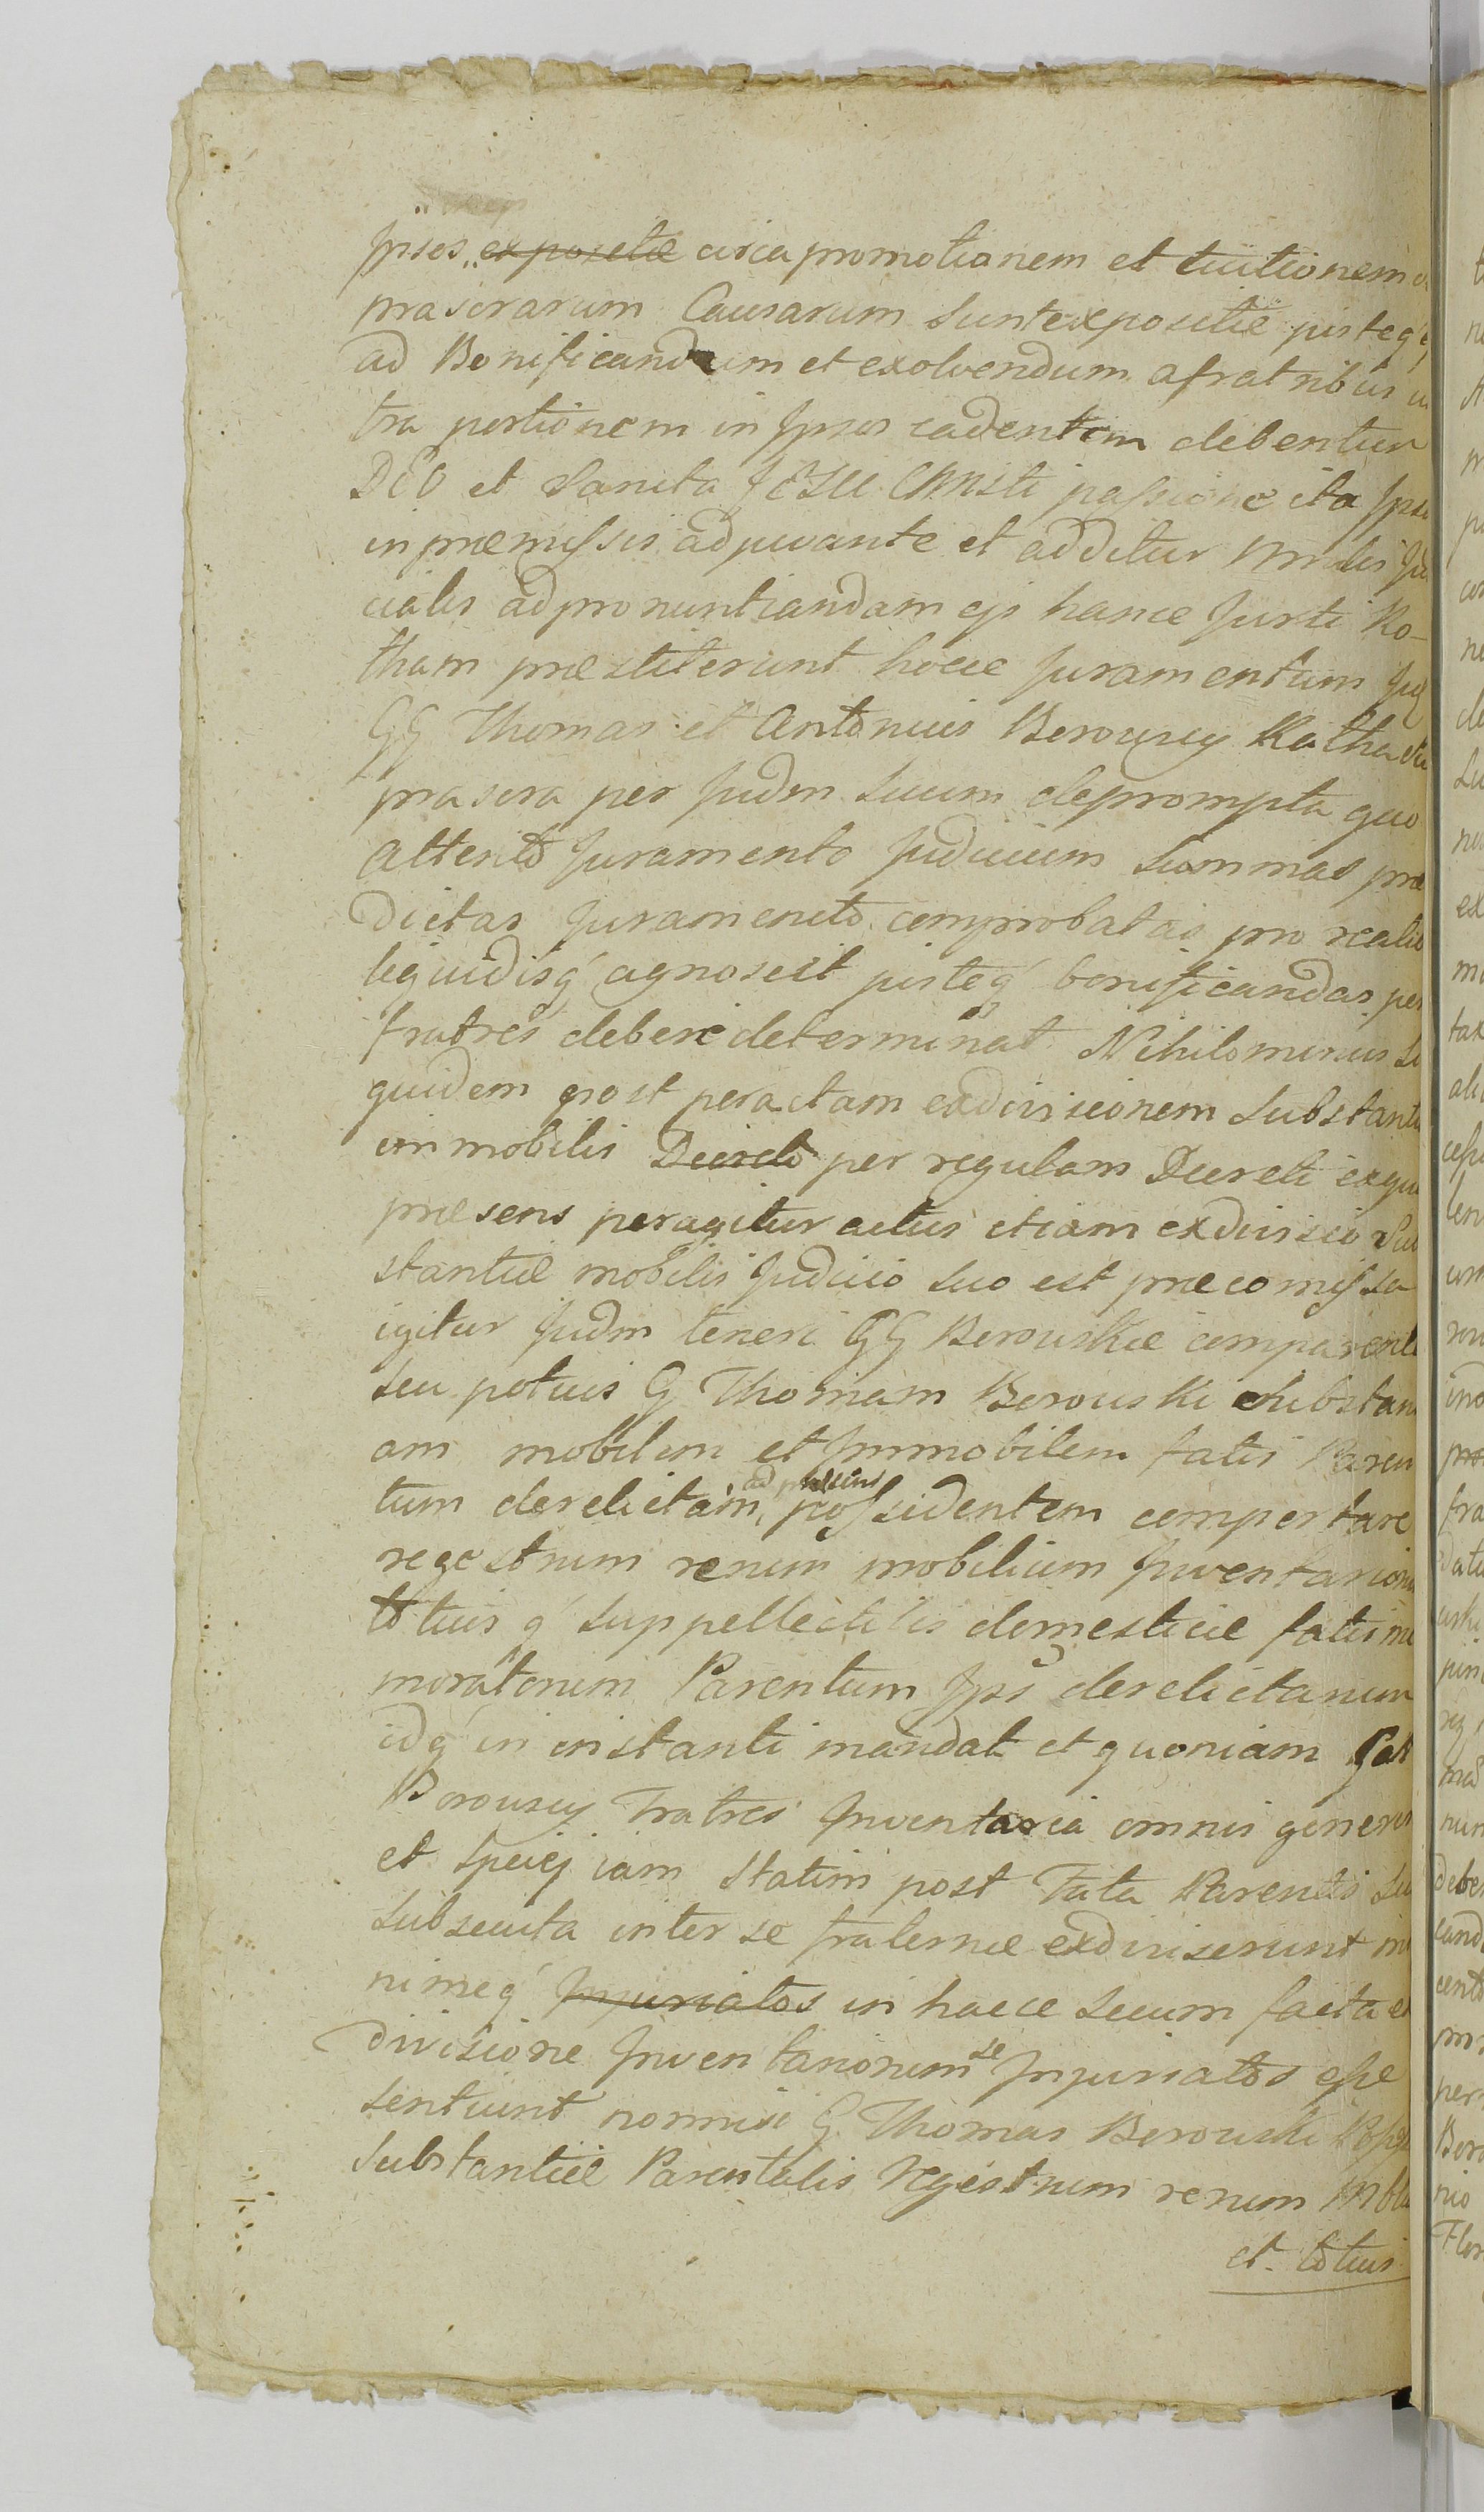 Ipsos expositæ circa promotionem et tuitionem
præsrarum Causarum sunt expositæ justeq́
ad Bonificandum et exolvendum a fratribus
tra portionem in Ipsos cadentem debentur
DEO et Sancta JESU CHRISti passione ita
in præmissis adjuvante et additur
cialis ad pronuntiandam ejs hance Jurti Ro-
tham præstiterunt hocce Juramentum
GG Thomas et Antonius Berouscy Rotha
præsera per Judm Suum deprompta quo
attento Juramento Judicium Summas præ
dictas Juramento comprobatas pro
liquidisq́ agnoscit justeq́ bonificandas per
fratres debere determinat Nihilominus
quidem post peractam exdivisionem
immobilis Decreto per regulam Decreti
præsens peragitur actus etiam exdivisio
stantiæ mobilis Judicio Suo est præcomissa
igitur Judm teneri GG Berouskie
seu potius G Thomam Berouski
am mobilem et Immobilem fatis
tum derelictam, ad præsens possidentem comportare
regestrum rerum mobilium
totius q́ suppellectilis domesticæ
moratorum Parentum Ips derelictarum
idq́ in instanti mandat et quoniam
Borouscy Fratres Inventaria omnis generis
et speciej iam Statim post Fata Parentis
subsecuta inter se fraternæ exdiviserunt
nimeq́ Injuriatos in hacce secum facta
divisione Inventariorum se Injuriatos esse
sentiunt nonnisi G Thomas Berouski
substantiæ Parentalis regestrum rerum
et totius